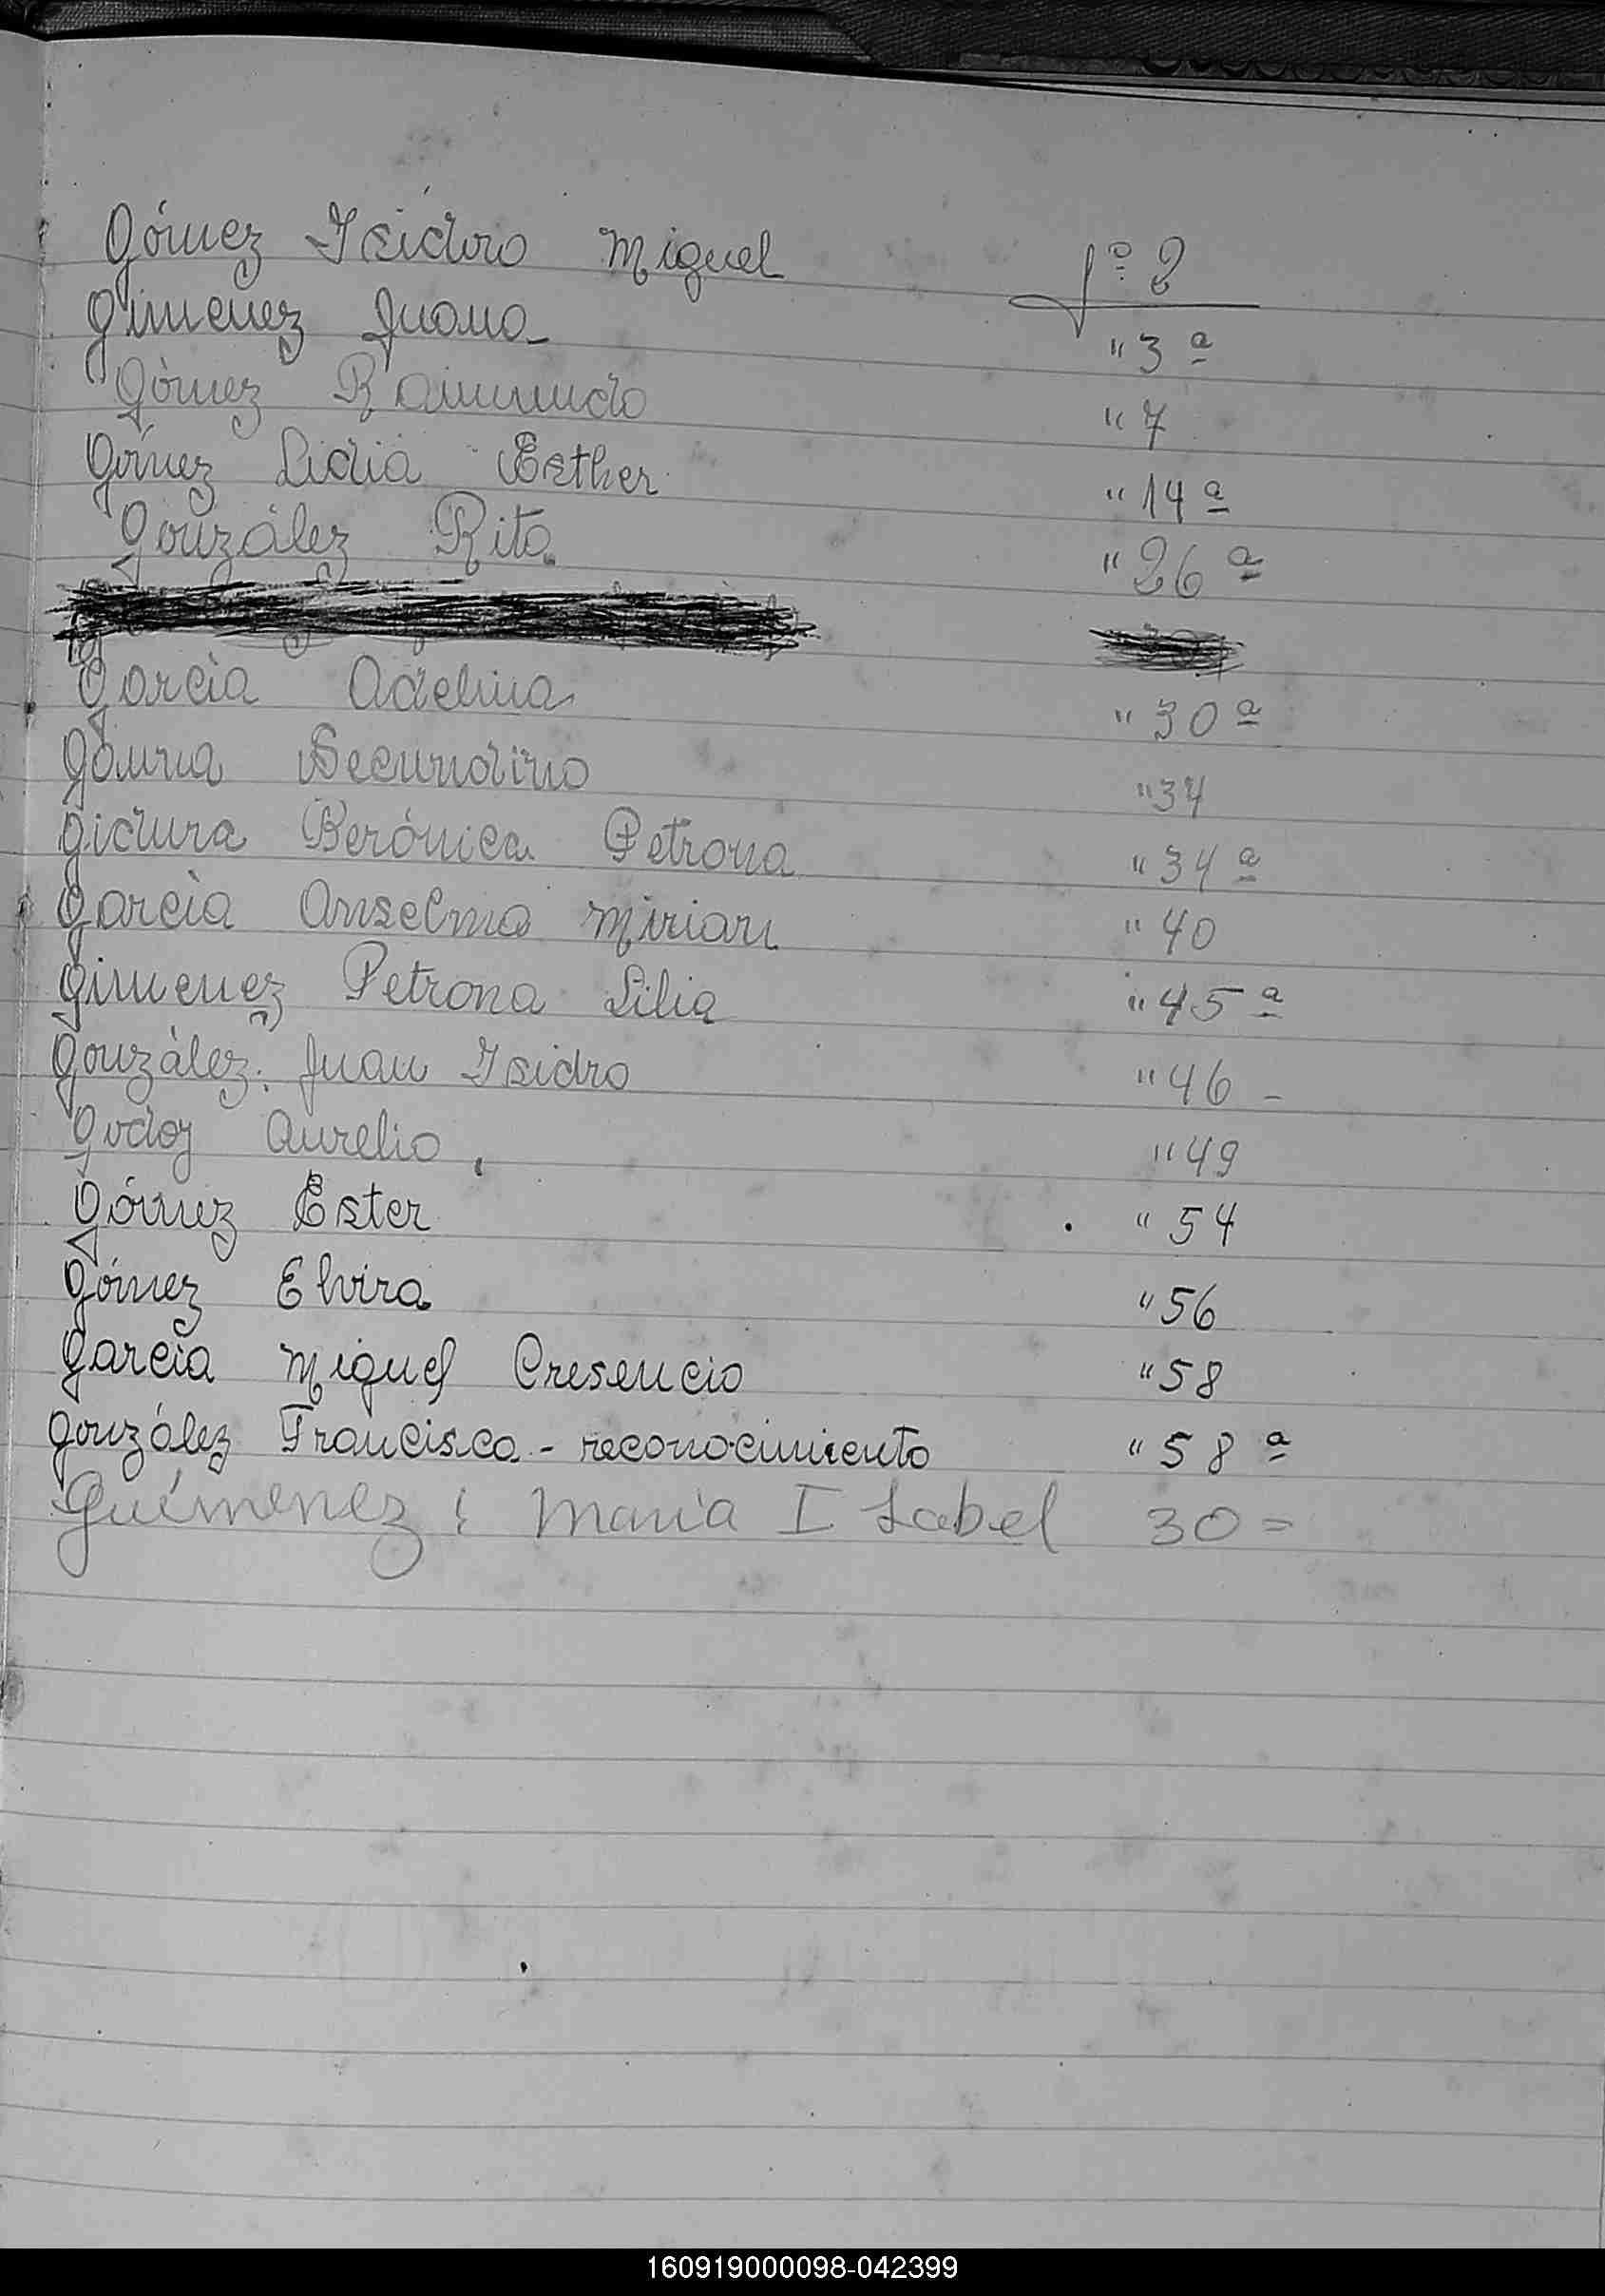 Gómez Isidoro Miguel fº 2
Gimenez Juana " 3ª
Gómez Raimundo " 7
Gómez Lidia Esther " 14ª
González Rita " 26ª
García Adelina " 30ª
Gauna Secundino " 34
Gictura Berónica Petrona " 34ª
García Anselma Mirian " 40
Gimenez Petrona Lilia " 45ª
González: Juan Isidro " 46 -
Godoy Aurelio, " 49
Gómez Ester " 54
Gómez Elvira " 56
García Miguel Cresencio " 58
González Francisca - reconocimiento " 58ª
Guimenez: Maria Isabel 30 =
160919000098-042399